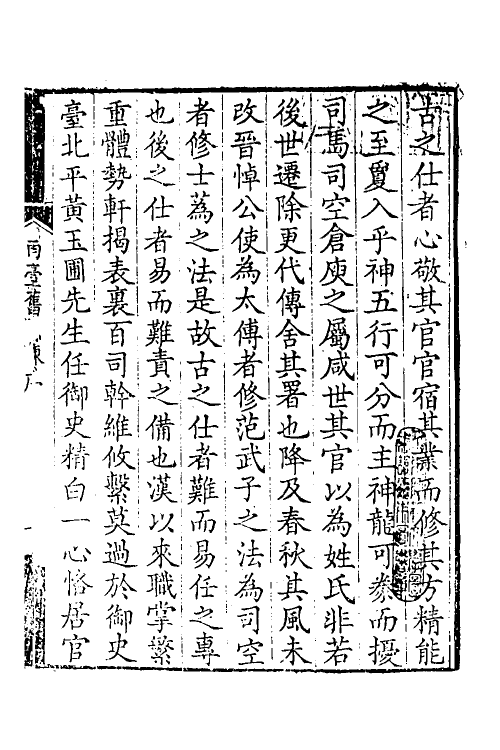 古之仕者心敬其官官宿其業而修其方精能
之至夐入乎神五行可分而主神龍可豢而擾
司馬司空倉庾之屬咸世其官以為姓氏非若
後世遷除更代傳舍其署也降及春秋其風未
改晉悼公使為太傅者修范武子之法為司空
者修士蒍之法是故古之仕者難而易任之專
也後之仕者易而難責之備也漢以來職掌繁
重體勢軒揭表裏百司幹維攸繫莫過於御史
臺北平黃玉圃先生任御史精白一心恪居官
南臺舊